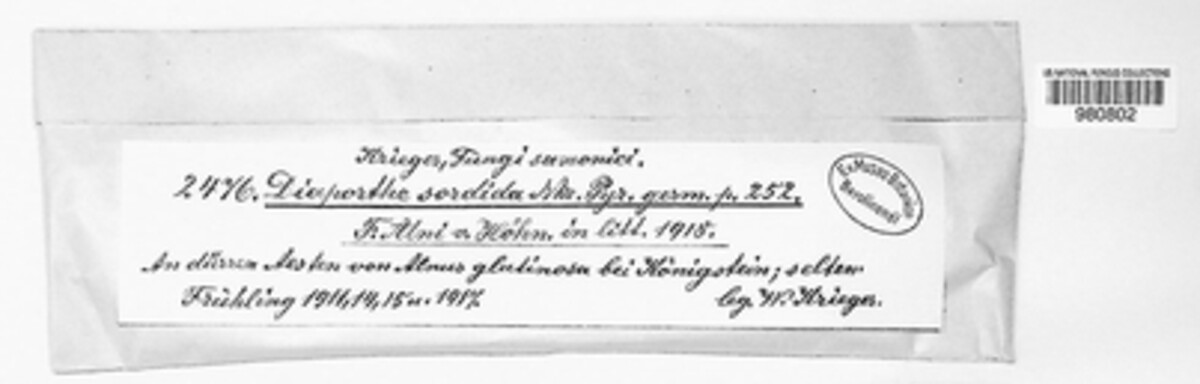 Krieger, Fungi saxonici.
2476. Diaporthe sordida Nke. Pyr. germ. p. 252.
F. Alni v. Höhn. in litt. 1918.
An dürren Aesten von Alnus glutinosa bei Königstein; selten
Frühling 1911, 14, 15 u. 1917. leg. W. Krieger.
Ex Museo Botanico
Berolinensi
US NATIONAL FUNGUS COLLECTIONS
980802